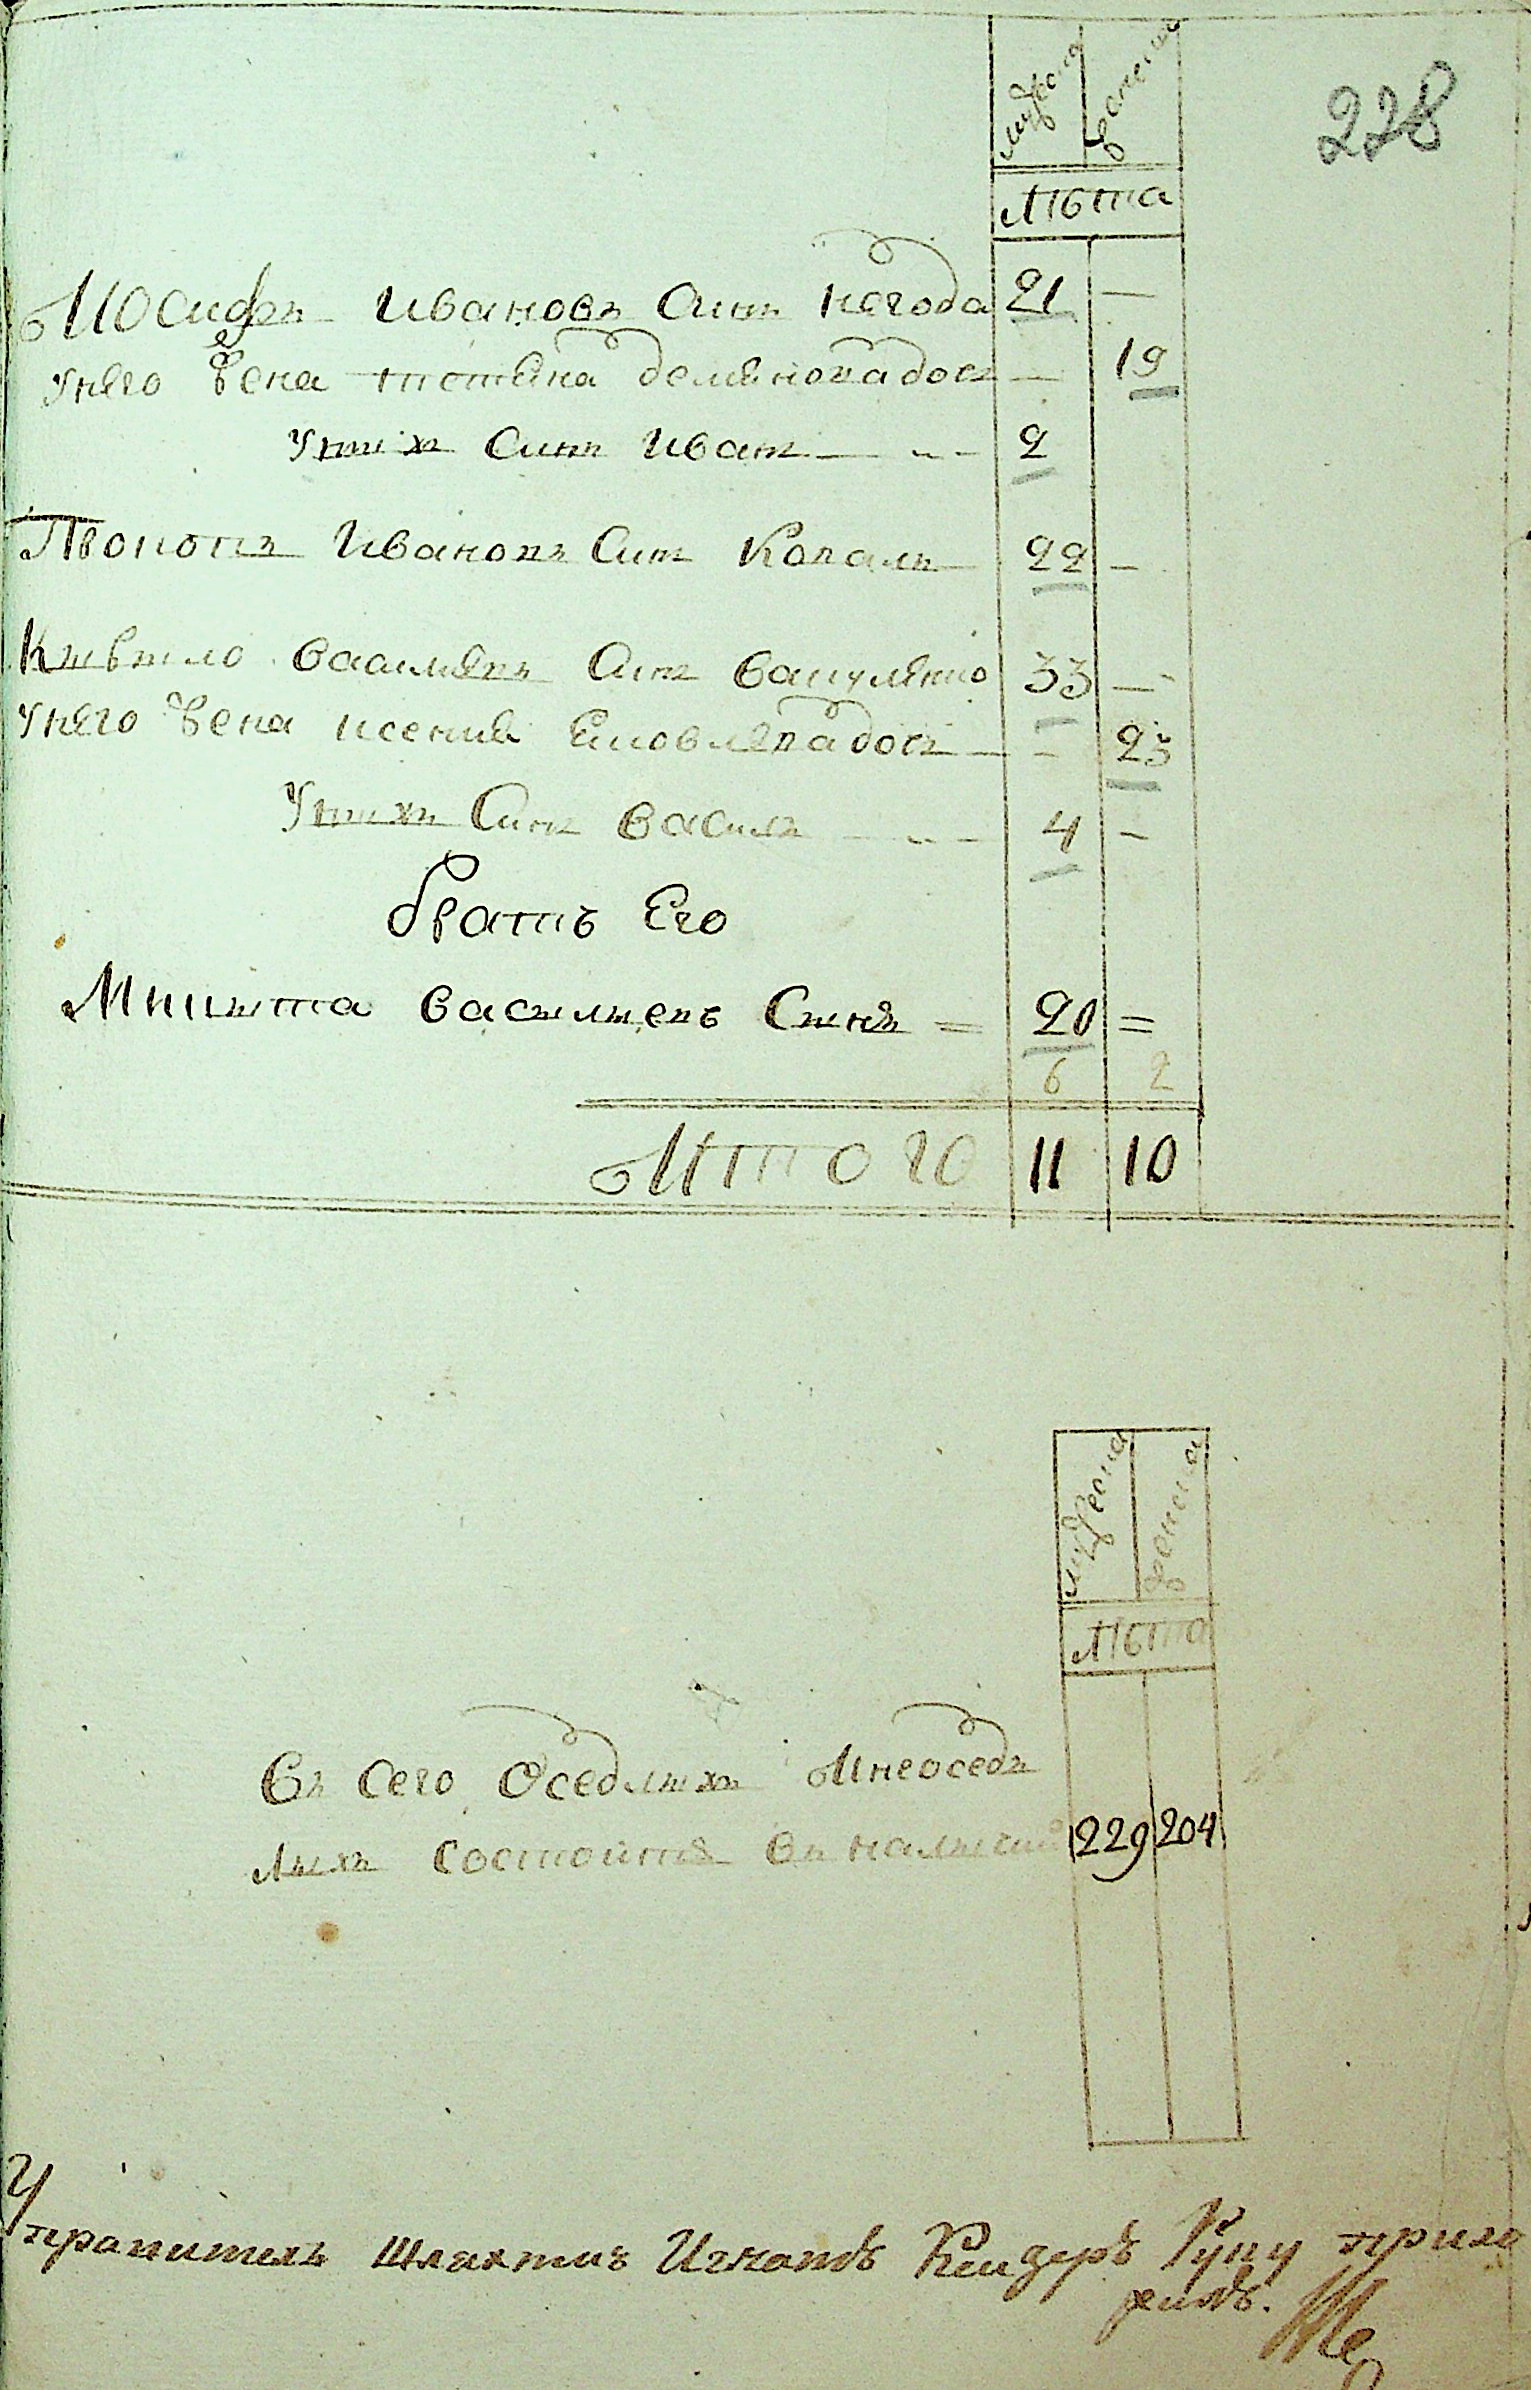 228
мужска женска
лѣта
Иосифъ Ивановъ Синъ Негода 21 —
унего Жена тетяна демяновадочъ — 19
Унихъ Синъ Иванъ — 2
Прокопъ Ивановъ Синъ Коваль 22 —
Кирило василевъ Синъ вакуленко 33 —
Унего Жена ксения Яковлевадочъ — 23
Унихъ Синъ василь — 4 —
братъ Его
Микита василиевъ Синъ = 20 =
6 2
Итого 11 10
мужеска женска
лѣта
Всего Оседлихъ Инеосед
лихъ состоитъ въ 229 204
Управитель Шляхтичъ Игнатъ Руку прило
жилъ.